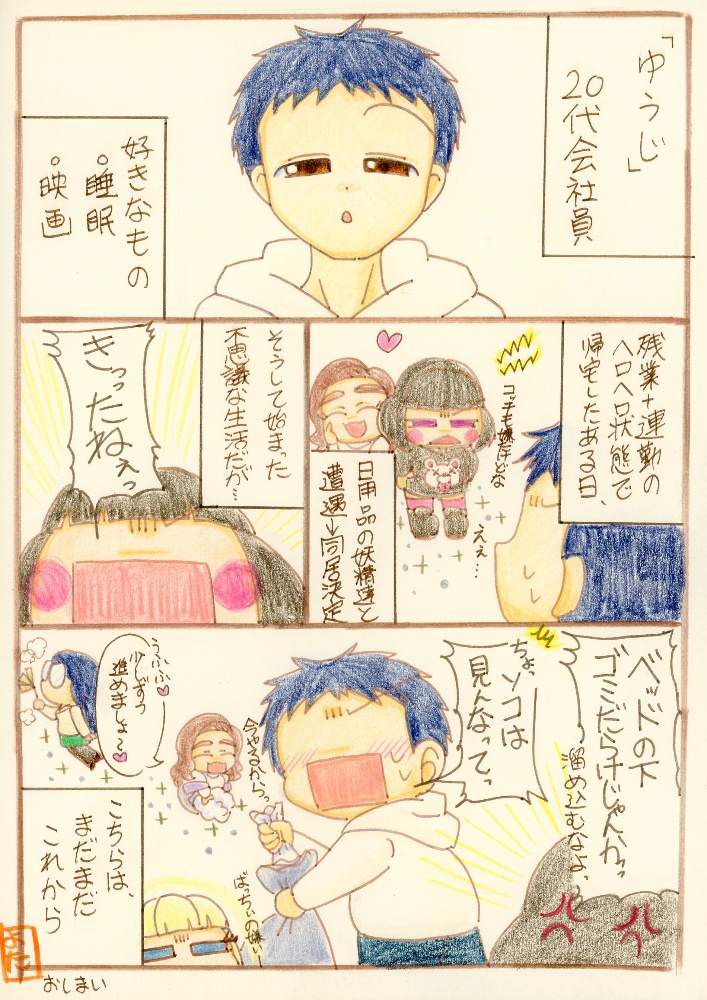 「ゆうじ」
20代会社員
好きなもの
•睡眠
•映画
残業+連勤の
ヘロヘロ状態で
帰宅したある日、
コッチも嫌だけどな
ええ…
日用品の妖精達と
遭遇→同居決定
そうして始まった
不思議な生活だが…
きったねぇっ
ベッドの下
ゴミだらけじゃんかっ
溜め込むなよっ
ちょっ
ソコは
見んなって
今やるからっ
ばっちいの嫌い
うふふ
少しずつ
進めましょ〜
こちらは、
まだまだ
これから
おしまい